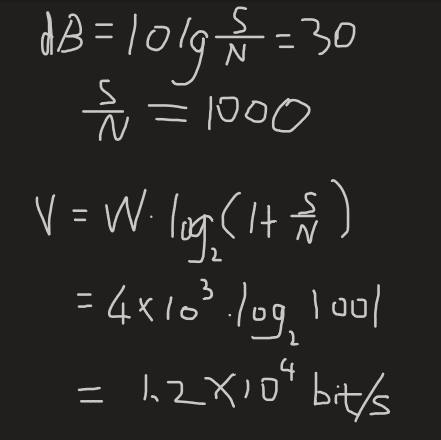 dB = 10lg S/N = 30
S/N = 1000
V = W · log₂(1 + S/N)
= 4×10³ · log₂ 1001
= 1.2×10⁴ bit/s